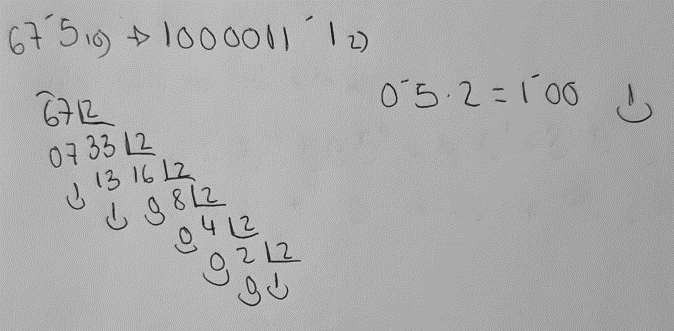 67´5₁₀) → 1000011´1₂)
0´5·2 = 1´00 1
67 |2
07 33 |2
1 13 16 |2
1 0 8 |2
0 4 |2
0 2 |2
0 1